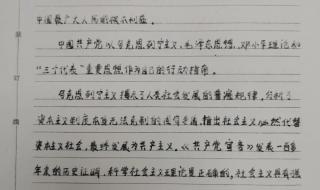 中国最广大人民的根本利益。
中国共产党以马克思列宁主义、毛泽东思想、邓小平理论和
“三个代表”重要思想作为自己的行动指南。
马克思列宁主义揭示了人类社会发展的普遍规律，分析了
资本主义制度本身无法克制的固有矛盾，指出社会主义必然代替
资本主义社会，最终发展为共产主义。《共产党宣言》发表一百多
年来的历史证明，科学社会主义理论是正确的，社会主义具有强
装
订
线